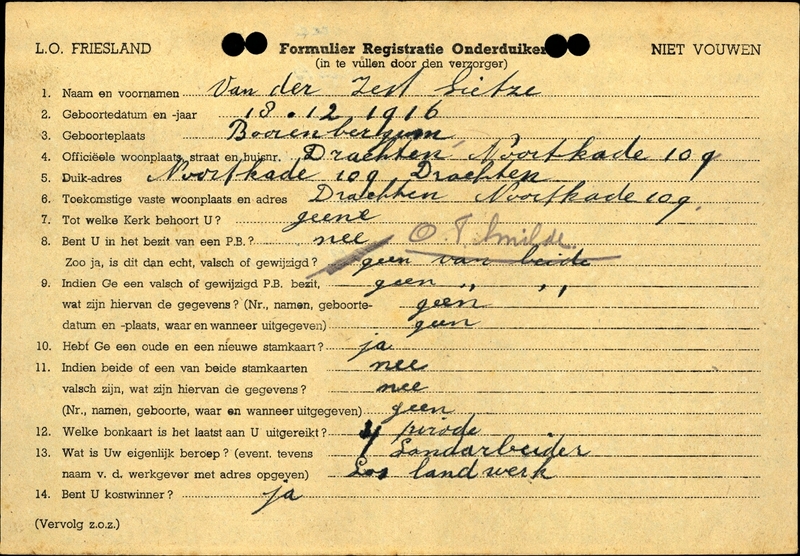 L.O. FRIESLAND Formulier Registratie Onderduiker NIET VOUWEN
(in te vullen door den verzorger)
1. Naam en voornamen Van der Zest Sietze
2. Geboortedatum en -jaar 18.12.1916
3. Geboorteplaats Boorenberhum
4. Officiëele woonplaats, straat en huisnr. Drachten Noortkade 109
5. Duik-adres Noortkade 109 Drachten
6. Toekomstige vaste woonplaats en adres Drachten Noortkade 109
7. Tot welke Kerk behoort U? geene
8. Bent U in het bezit van een P.B.? nee O.T. Smilde.
Zoo ja, is dit dan echt, valsch of gewijzigd? geen van beide
9. Indien Ge een valsch of gewijzigd P.B. bezit, geen „ „
wat zijn hiervan de gegevens? (Nr., namen, geboorte- geen
datum en -plaats, waar en wanneer uitgegeven) geen
10. Hebt Ge een oude en een nieuwe stamkaart? ja
11. Indien beide of een van beide stamkaarten nee
valsch zijn, wat zijn hiervan de gegevens? nee
(Nr., namen, geboorte, waar en wanneer uitgegeven) geen
12. Welke bonkaart is het laatst aan U uitgereikt? 4 pirode
13. Wat is Uw eigenlijk beroep? (event. tevens Landarbeider
naam v. d. werkgever met adres opgeven) Los landwerk
14. Bent U kostwinner? ja
(Vervolg z.o.z.)